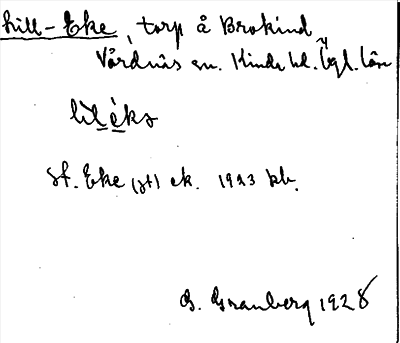 Lill-Eke, torp å Brokind,
Vårdnäs sn. Kinda hd. Ögl. län
lìlèka
St. Eke (st) ek. 1923 kb.
G. Granberg 1928